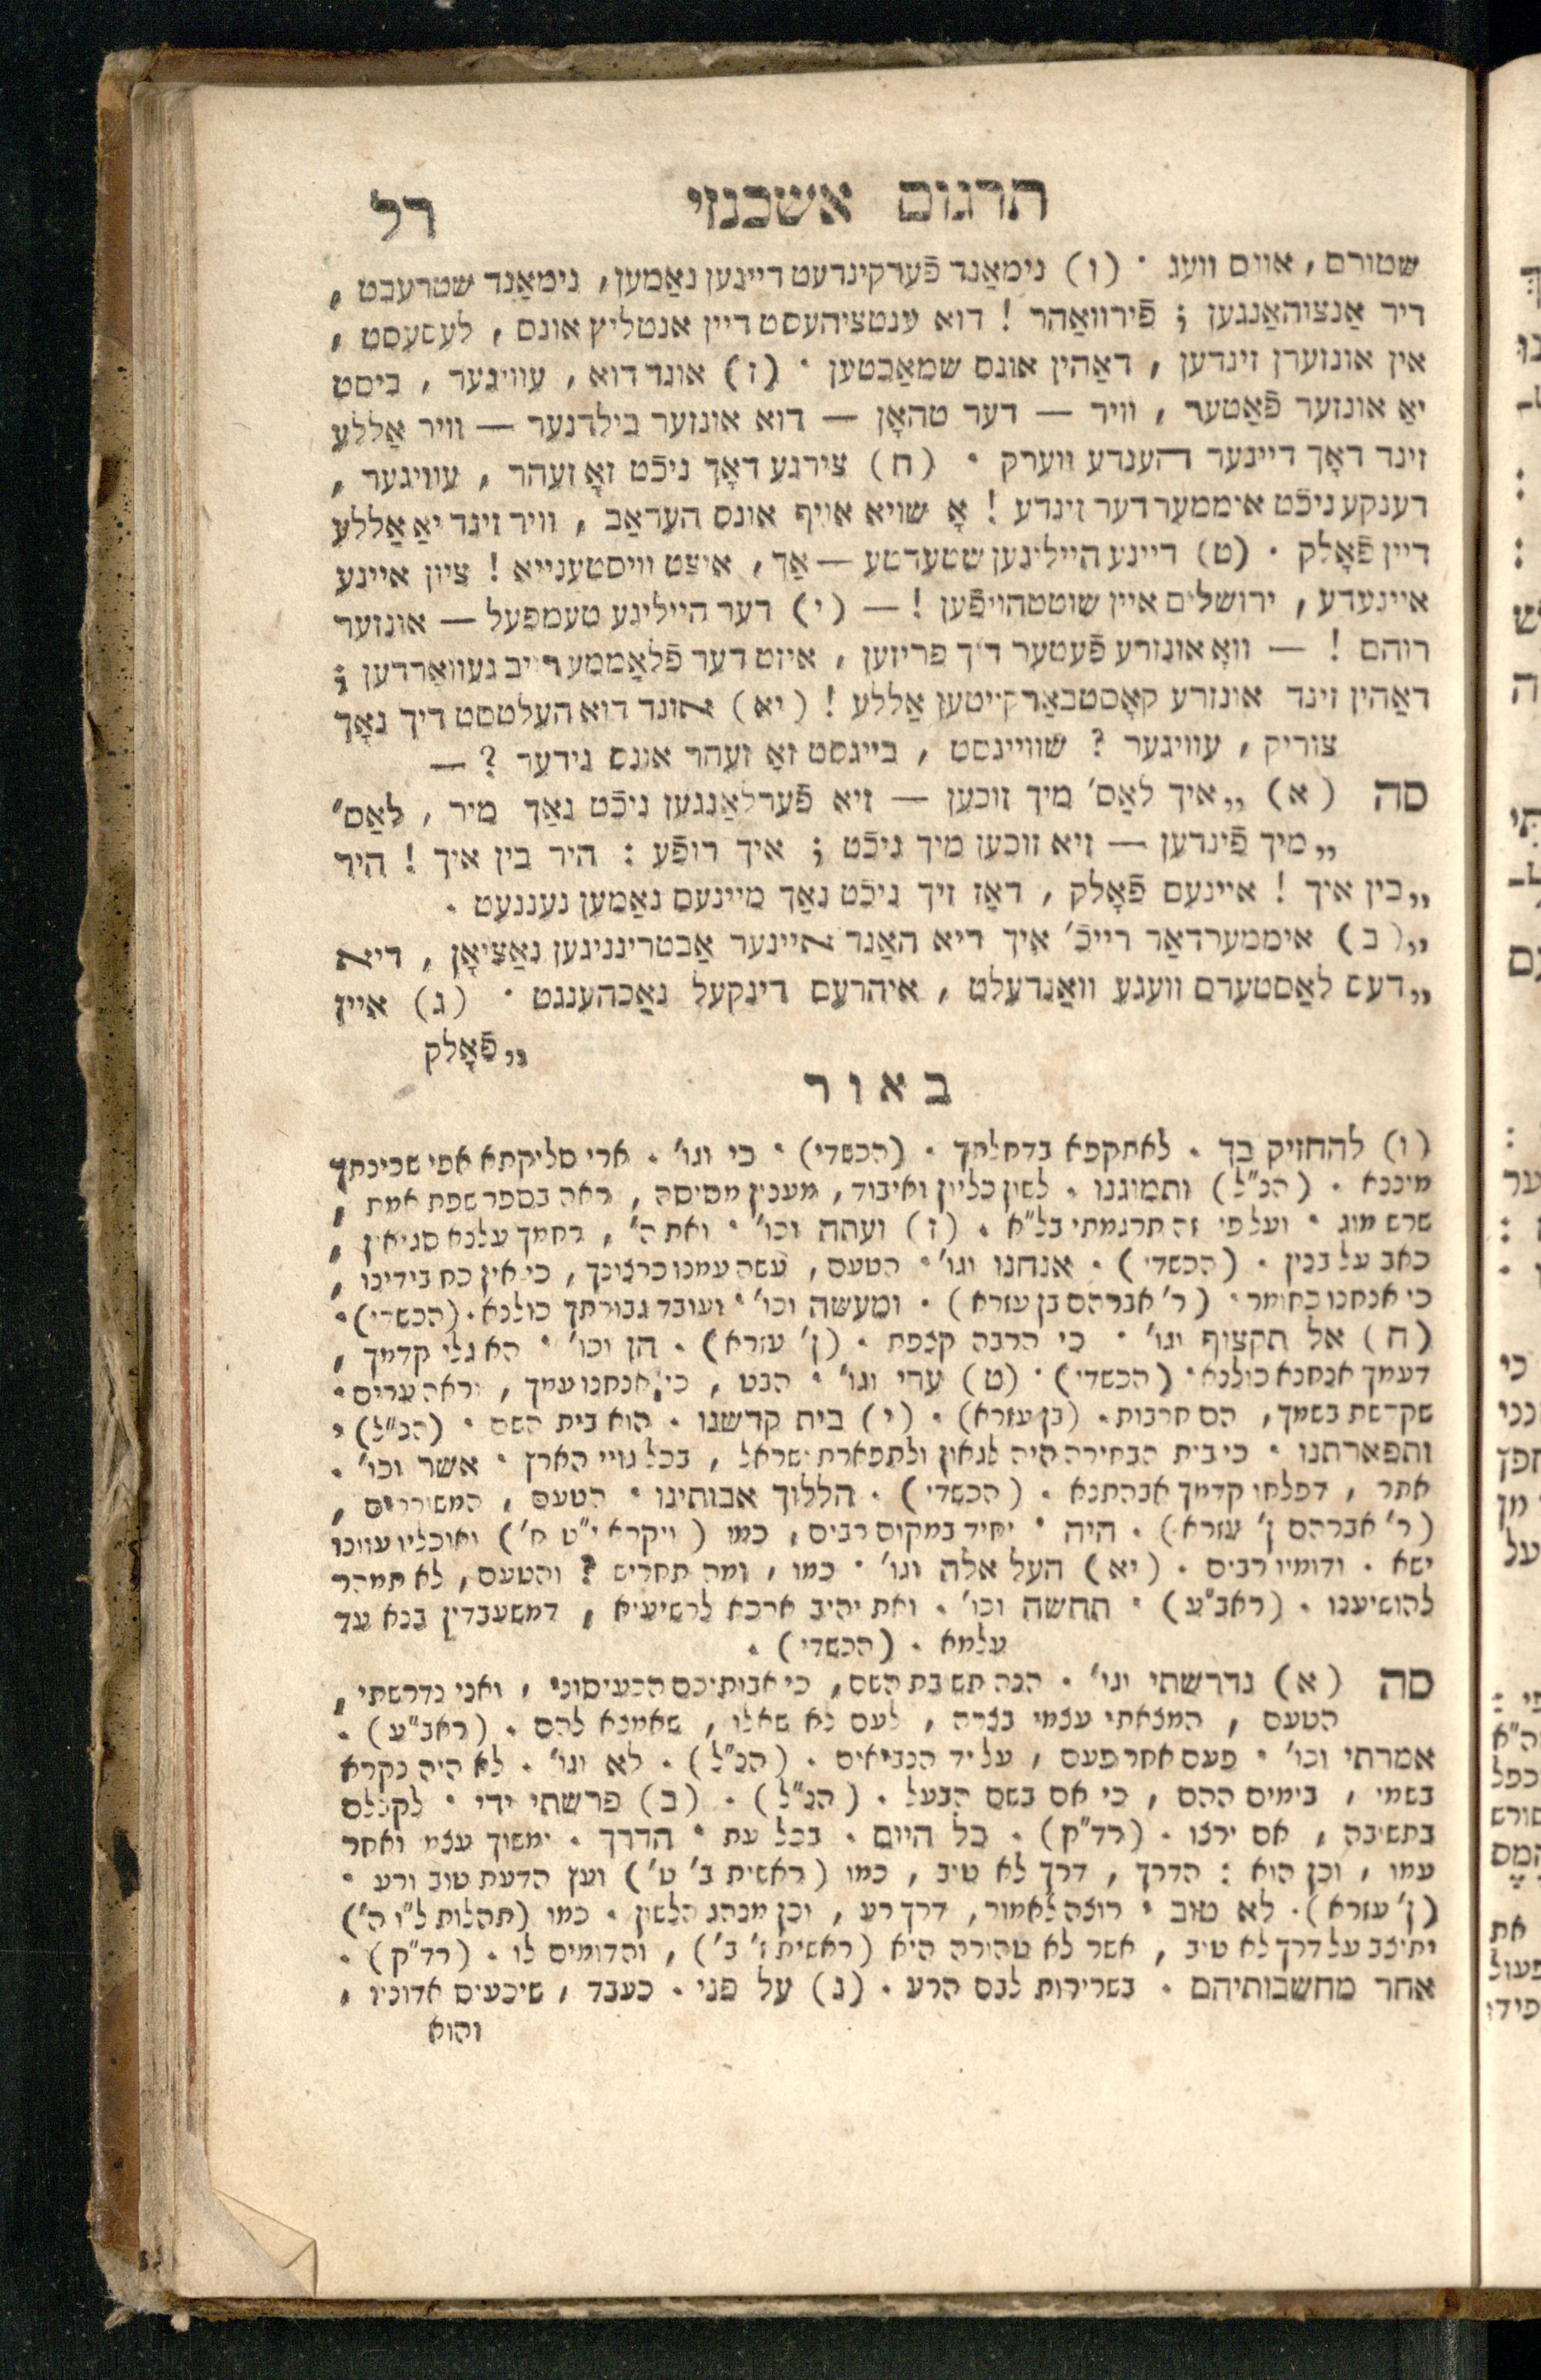 תרגום אשכנזי
רל
שטורם, אווס וועג · (ו) נימאַנד פֿערקינדעט דיינען נאַמען, נימאַנד שטרעבט,
דיר אַנצוהאַנגען; פֿירוואַהר! דוא ענטציהעסט דיין אנטליץ אונס, לעסעסט,
אין אונזערן זינדען, דאַהין אונס שמאַכטען · (ז) אונד דוא, עוויגער, ביסט
יאַ אונזער פֿאַטער, וויר — דער טהאָן — דוא אונזער בילדנער — וויר אַללע
זינד דאָך דיינער הענדע ווערק · (ח) צירנע דאָך ניכֿט זאָ זעהר, עוויגער,
דענקע ניכֿט איממער דער זינדע! אָ שויא אויף אונס העראַב, וויר זינד יאַ אַללע
דיין פֿאָלק · (ט) דיינע הייליגען שטעדטע — אַך, איצט וויסטענייא! ציון איינע
איינעדע, ירושלים איין שוטטהויפֿען! — (י) דער הייליגע טעמפעל — אונזער
רוהם! — וואָ אונזרע פֿעטער דיך פריזען, איזט דער פֿלאַממע רויב געוואָרדען;
דאַהין זינד אונזרע קאָסטבאַרקייטען אַללע! (יא) אונד דוא העלטסט דיך נאָך
צוריק, עוויגער? שווייגסט, בייגסט זאָ זעהר אונס נידער? —
סה (א) „איך לאַס' מיך זוכען — זיא פֿערלאַנגען ניכֿט נאַך מיר, לאַס'
„מיך פֿינדען — זיא זוכען מיך ניכֿט; איך רופֿע: היר בין איך! היר
„בין איך! איינעם פֿאָלק, דאַז זיך ניכֿט נאַך מיינעם נאַמען נעננעט ·
„(ב) איממערדאַר רייכֿ' איך דיא האַנד איינער אַבטרינניגען נאַציאָן, דיא
„דעס לאַסטערס וועגע וואַנדעלט, איהרעם דינקעל נאַכהענגט · (ג) איין
„פֿאָלק
באור
(ו) להחזיק בך · לאתקפא בדחלתך · (הכשדי) · כי וגו' · ארי סליקתא אפי שכינתך
מיננא · (הנ"ל) ותמוגנו · לשון כליון ואיבוד, מענין מסיסה, ראה בספר שפת אמת,
שרש מוג · ועל פי זה תרגמתי בל"א · (ז) ועתה וכו' · ואת ה', רחמך עלנא סגיאין,
כאב על בנין · (הכשדי) · אנחנו וגו' · הטעם, עשה עמנו כרצונך, כי אין כח בידינו,
כי אנחנו כחומר · (ר' אברהם בן עזרא) · ומעשה וכו' · ועובד גבורתך כולנא · (הכשדי) ·
(ח) אל תקצוף וגו' · כי הרבה קצפת · (ן' עזרא) · הן וכו' · הא גלי קדמך,
דעמך אנחנא כולנא · (הכשדי) · (ט) ערי וגו' · הבט, כי אנחנו עמך, וראה ערים ·
שקדשת בשמך, הם חרבות · (בן עזרא) · (י) בית קדשנו · הוא בית השם · (הנ"ל) ·
ותפארתנו · כי בית הבחירה היה לגאון ולתפארת ישראל, בכל גויי הארץ · אשר וכו' ·
אתר, דפלחו קדמך אבהתנא · (הכשדי) · הללוך אבותינו · הטעם, המשוררים,
(ר' אברהם ן' עזרא) · היה · יחיד במקום רבים, כמו (ויקרא י"ט ח') ואוכליו עוונו
ישא · ודומיו רבים · (יא) העל אלה וגו' · כמו, ומה תחריש? והטעם, לא תמהר
להושיענו · (ראב"ע) · תחשה וכו' · ואת יהיב ארכא לרשיעיא, דמשעבדין בנא עד
עלמא · (הכשדי) ·
סה (א) נדרשתי וגו' · הנה תשובת השם, כי אבותיכם הכעיסוני, ואני נדרשתי,
הטעם, המצאתי עצמי בצרה, לעם לא שאלו, שאמצא להם · (ראב"ע) ·
אמרתי וכו' · פעם אחר פעם, על יד הנביאים · (הנ"ל) · לא וגו' · לא היה נקרא
בשמי, בימים ההם, כי אם בשם הבעל · (הנ"ל) · (ב) פרשתי ידי · לקבלם
בתשובה, אם ירצו · (רד"ק) · כל היום · בכל עת · הדרך · ימשוך עצמו ואחר
עמו, וכן הוא: הדרך, דרך לא טוב, כמו (ראשית ב' ט') ועץ הדעת טוב ורע ·
(ן' עזרא) · לא טוב · רוצה לאמור, דרך רע, וכן מנהג הלשון · כמו (תהלות ל"ו ה')
יתיצב על דרך לא טוב, אשר לא טהורה היא (ראשית ז' ב'), והדומים לו · (רד"ק) ·
אחר מחשבותיהם · בשרירות לבם הרע · (ג) על פני · כעבד, שיכעיס אדוניו,
והוא